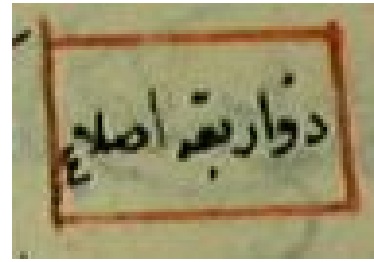 ذواربعة اضلاع